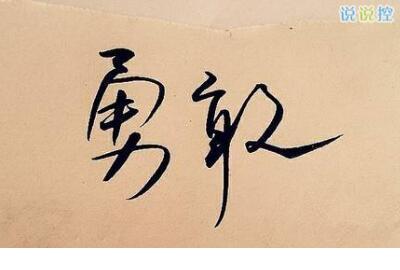 说说控
勇敢